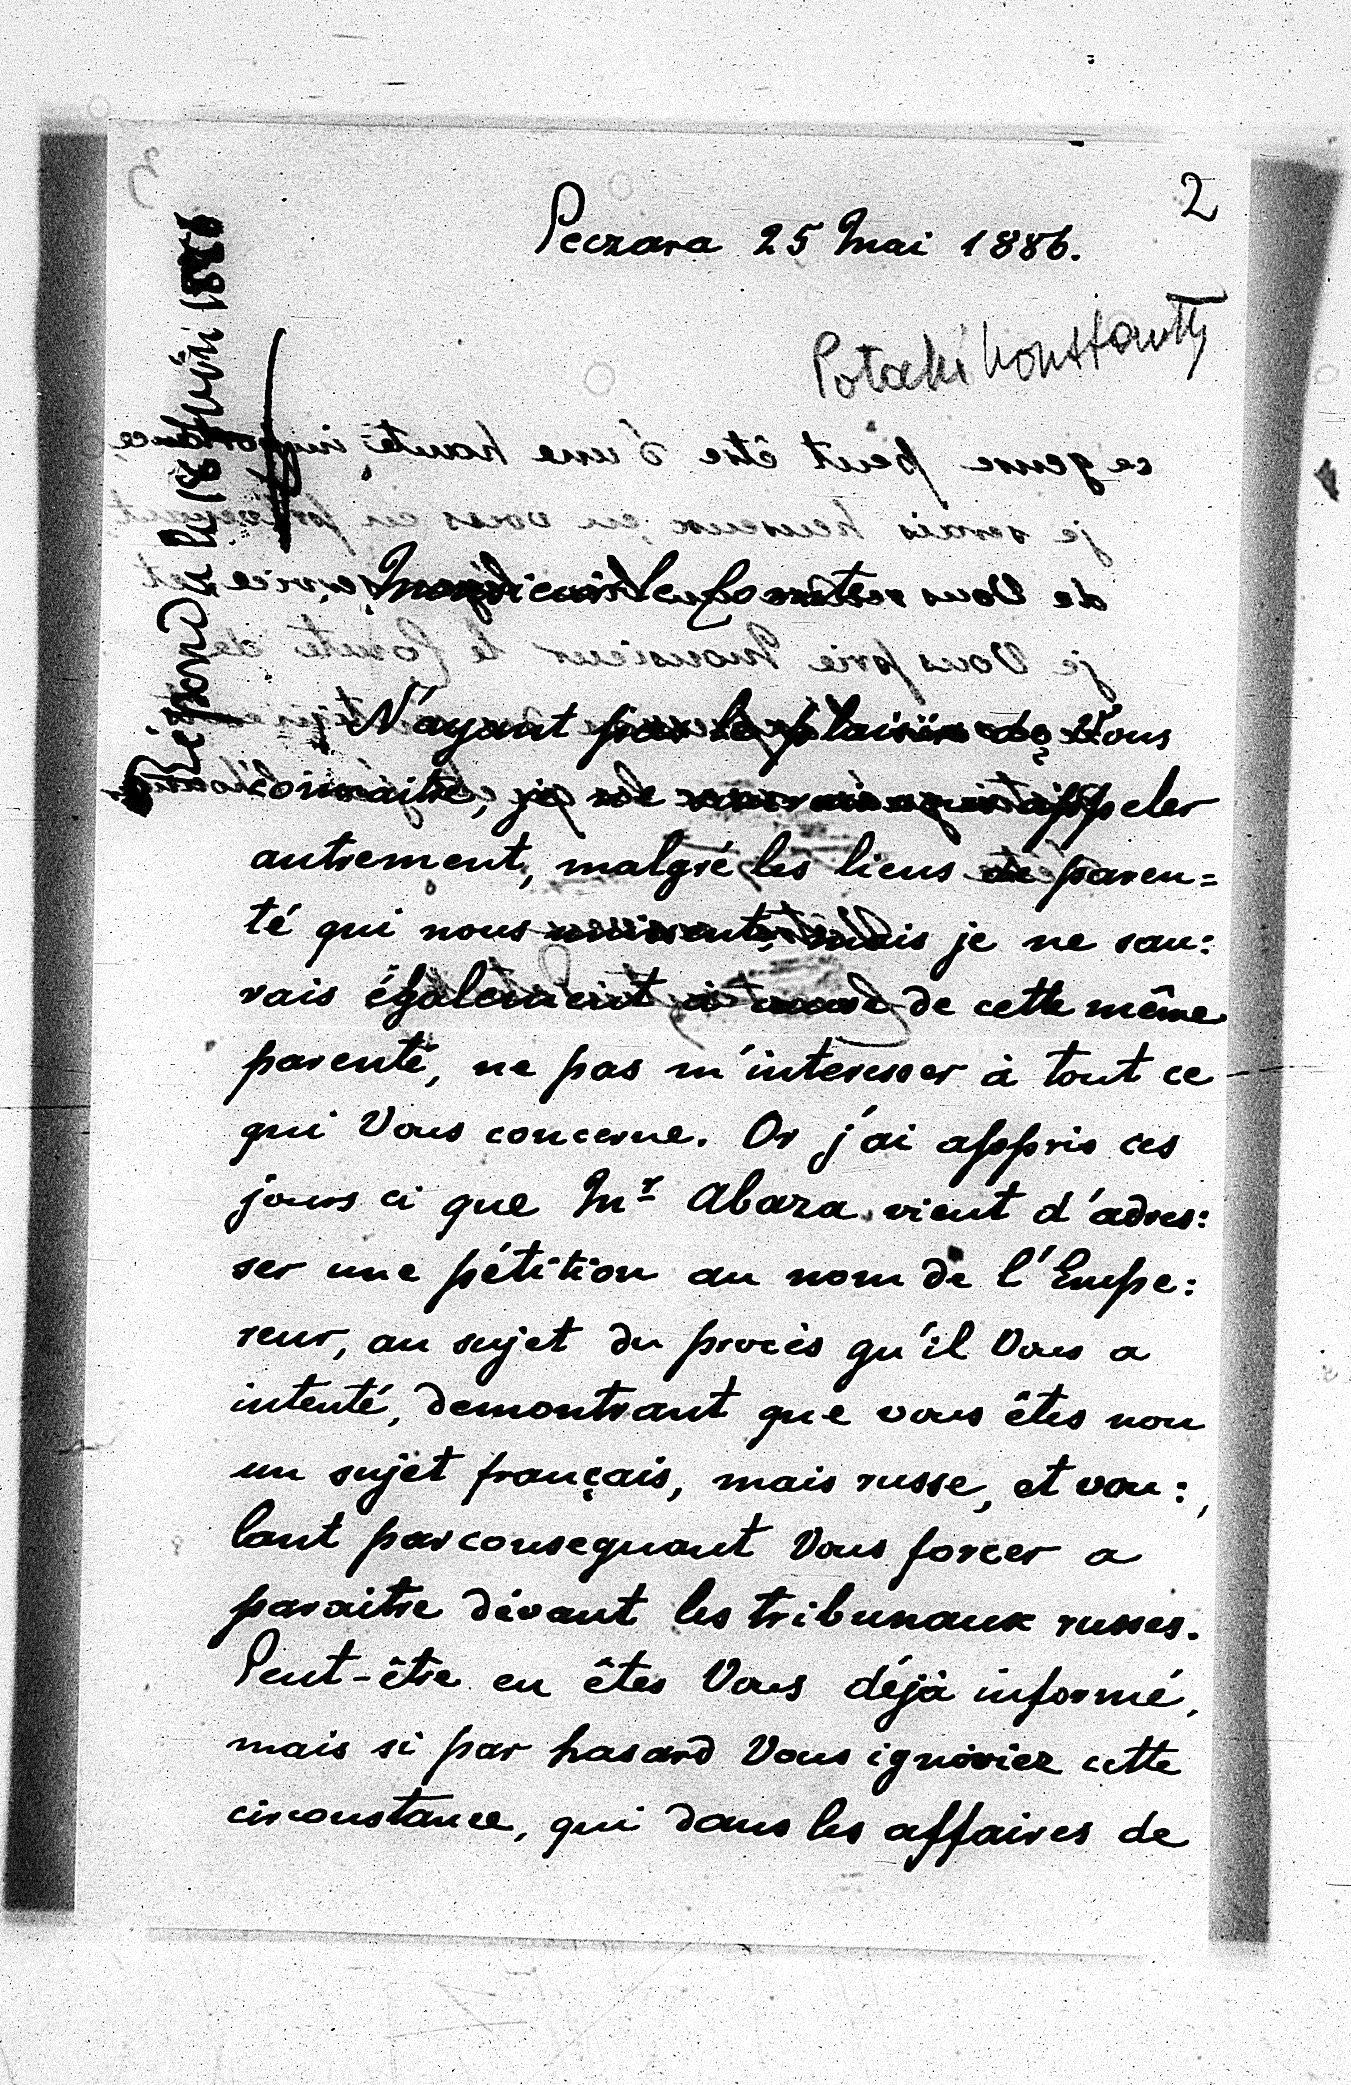 2
Peczara 25 Mai 1886.
Potocki Konstanty
Répondu le 18 Juin 1886
Monsieur le Comte
N'ayant pas le plaisir de Vous
connaitre, je ne appeler
autrement, malgré les liens de paren=
té qui nous unissent, mais je ne sau:
rais également à cause de cette même
parenté, ne pas m'interesser à tout ce
qui Vous concerne. Or j'ai appris ces
jours ci que Mr Abaza vient d'adres:
ser une pétition au nom de l'Empe:
reur, au sujet du procès qu'il Vous a
intenté, demontrant que vous êtes non
un sujet français, mais russe, et vou:
lant parconsequant Vous forcer a
paraitre dévant les tribunaux russes.
Peut-être en êtes Vous déjà informé,
mais si par hasard Vous ignoriez cette
circonstance, qui dans les affaires de